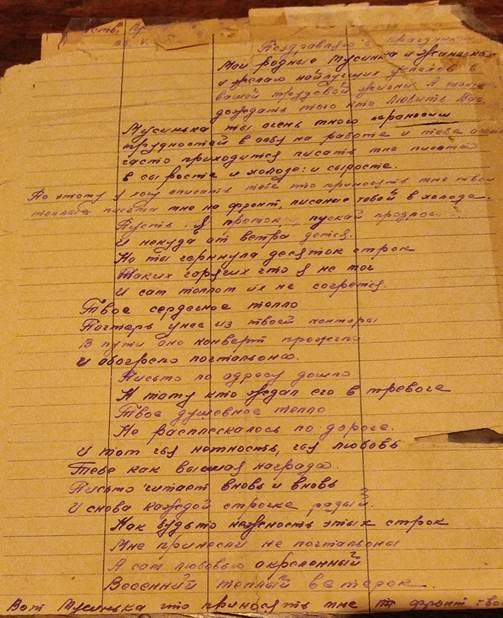 Поздравляю с праздником
Мои родные Мусинька и
и желаю найлучших успехов в
вашей трудовой жизни и
дождать того кто любить вас
Мусинька ты очень много переносиш
трудностей в на работе и тебе
часто приходится писать мне писма
в сыросте и холоде: и сыросте.
По этому я хочу описать тебе что приносять мне твои
теплые писма мне на фронт, писаные тобой в холоде.
Пусть я промок, пускай продрог
И некуда от ветра детса.
Но ты черкнула десяток строк
Таких горячих что я не мог
И сам теплом их не согретса.
Твое сердечное тепло
Почтарь унес из твоей конторы
В пути оно конверт прожгло
И обогрело почтальона.
Письмо по адресу дошло
К тому кто ждал его в тревоге
Твое душевное тепло
Не расплескалось по дороге.
И тот чья нежность, чья любовь
Тебе как высшая награда.
Письмо читает вновь и вновь
И снова каждой строчке радый.
Как будьто нежность этих строк
Мне принесли не почтальоны
А сам любовью окреленный
Весенний теплый ветерок.
Вот Мусинька что приносять мне на фронт